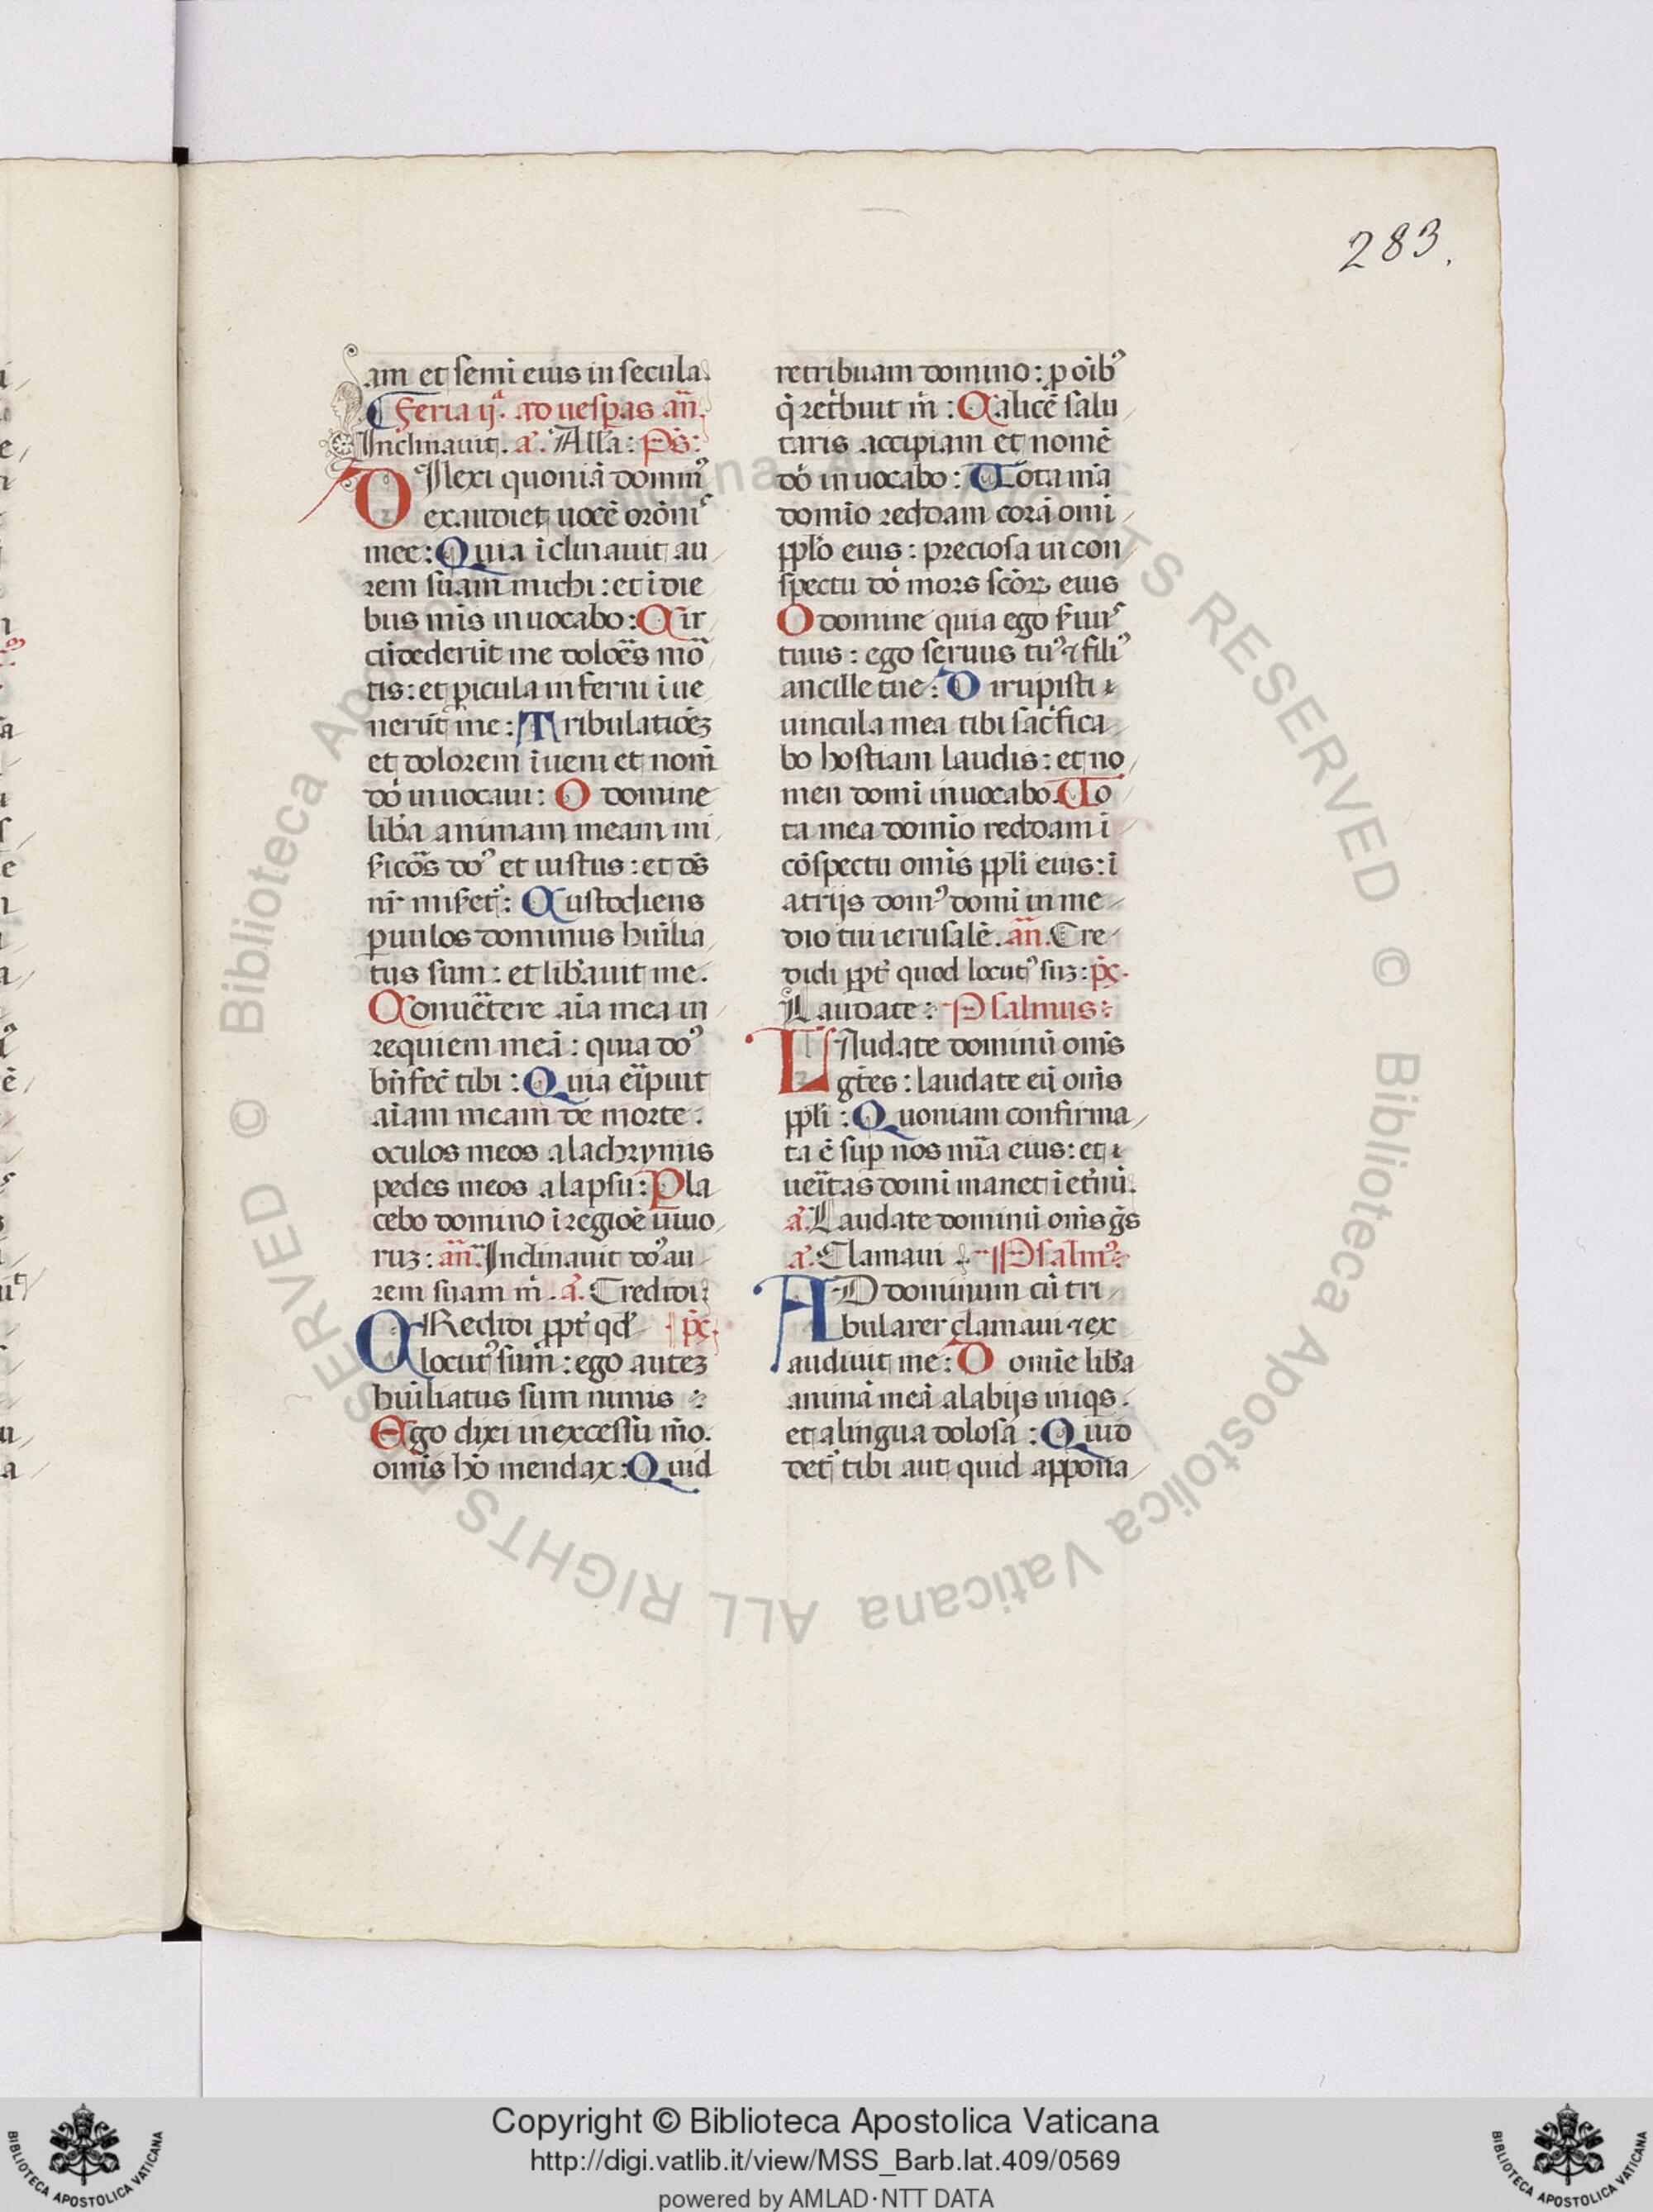 283.
am et semī eius in secula.
Feria ij͛. ad uesp̱as añ.
Inclinauit. a᷒. Alľa: Ps̄:
DIlexi quoniā domin᷒
exaudiet uocē or̄onis
mee: Quia īclinauit au
rem suam michi: et ī die
bus mīs inuocabo: Cir
cūdederūt me dolo͞es mō
tis: et p̱icula inferni īue
nerūt me: Tribulatiōeȝ
et dolorem īueni et nom̄
dō inuocaui: O domine
lib̄a animam meam mi
s̄icōs do᷒ et iustus: et ds̄
nr̄ mis̄et᷒: Custodiens
p̱uulos dominus hūilia
tus sum: et lib̄auit me.
Conu͞etere aīa mea in
requiem meā: quia do᷒
bn̄fec̄ tibi: Quia e͞ipuit
aīam meam de morte:
oculos meos a lachrymis
pedes meos a lapsu: Pla
cebo domino ī regiōe uiuo
ruȝ: añ. Inclinauit do᷒ au
rem suam m̄. a᷒. Credidi:
CRedidi ꝓpt᷒ qđ p̄s.
locut᷒ sum: ego auteȝ
hūiliatus sum nimis:
Ego dixi in excessu mō.
omīs hō mendax: Quid
retribuam domino: ꝓ oīb᷒
q̄ ret͛buit m̄: Calicē salu
taris accipiam et nomē
dō inuocabo: Uota mīa
domīo reddam corā omī
pplō eius: preciosa in con
spectu dō mors sc̄oꝝ eius
O domine quia ego s̄uus
tuus: ego seruus tu᷒ ⁊ fili᷒
ancille tue: Dirupisti
uincula mea tibi sac͛fica
bo hostiam laudis: et no
men domī inuocabo. Uo
ta mea domīo reddam ī
cōspectu omīs pplī eius: ī
atrijs dom᷒ domī in me
dio tui ierusalē. añ. Cre
didi ꝓpt᷒ quod locut᷒ suȝ: p̄s.
Laudate: Psalmus:
LAudate dominū om̄s
gētes: laudate eū om̄s
pplī: Quoniam confirma
ta ē sup̱ nos mīa eius: et
ue͞itas domī manet ī et᷒nū.
a᷒. Laudate dominū om̄s gs̄
a᷒. Clamaui. Psalm᷒:
AD dominum cū tri
bularer clamaui ⁊ ex
audiuit me: Domīe lib̄a
animā meā a labijs iniqs̄.
et a lingua dolosa: Quid
det᷒ tibi aut quid apponā
Copyright © Biblioteca Apostolica Vaticana
http://digi.vatlib.it/view/MSS_Barb.lat.409/0569
powered by AMLAD·NTT DATA
© Biblioteca Apostolica Vaticana ALL RIGHTS RESERVED
© Biblioteca Apostolica Vaticana ALL RIGHTS RESERVED
BIBLIOTECA APOSTOLICA VATICANA
BIBLIOTECA APOSTOLICA VATICANA